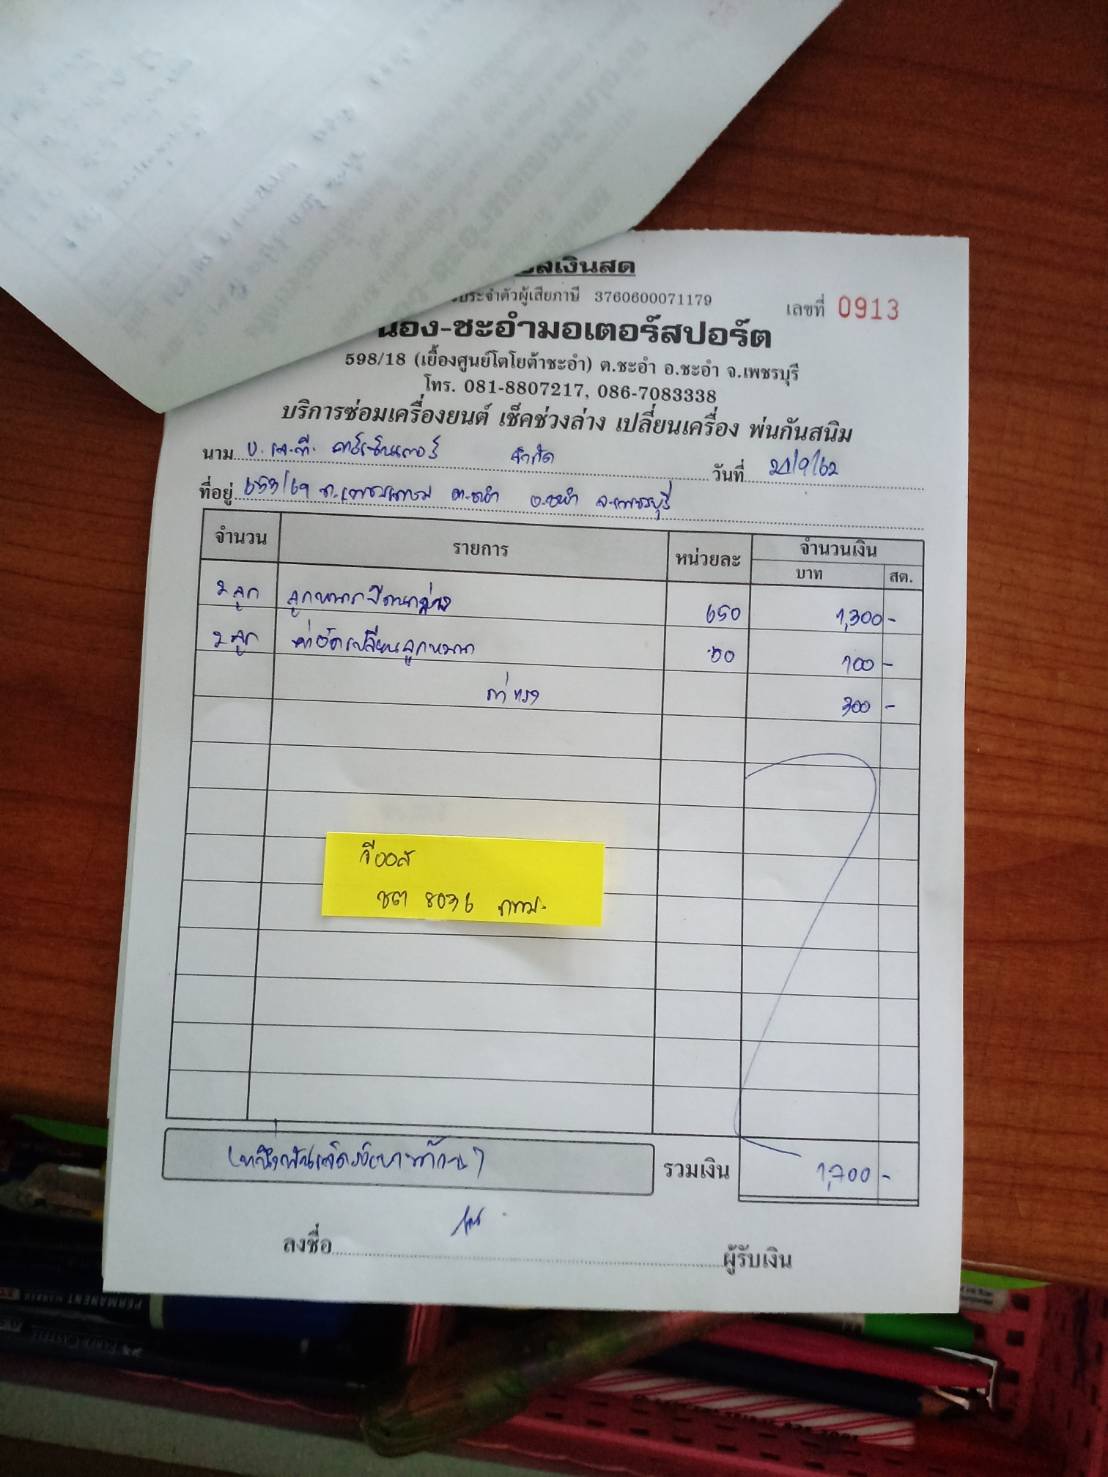 ลเงินสด
ประจำตัวผู้เสียภาษี 3760600071179
เลขที่ 0913
น้อง-ชะอำมอเตอร์สปอร์ต
598/18 (เยื้องศูนย์โตโยต้าชะอำ) ต.ชะอำ อ.ชะอำ จ.เพชรบุรี
โทร. 081-8807217, 086-7083338
บริการซ่อมเครื่องยนต์ เช็คช่วงล่าง เปลี่ยนเครื่อง พ่นกันสนิม
นาม บ. เค.ที. คาร์เซ็นเตอร์ จำกัด วันที่ 20/9/62
ที่อยู่ 653/69 ถ.เพชรเกษม ต.ชะอำ อ.ชะอำ จ.เพชรบุรี
จำนวน รายการ หน่วยละ จำนวนเงิน
บาท สต.
2 ลูก ลูกหมากปีกนกล่าง 650 1,300 -
2 ลูก ค่าอัดเปลี่ยนลูกหมาก 50 100 -
ค่าแรง 300 -
วีออส
ชต 8036 กทม.
(หนึ่งพันเจ็ดร้อยบาทถ้วน) รวมเงิน 1,700 -
ลงชื่อ ผู้รับเงิน